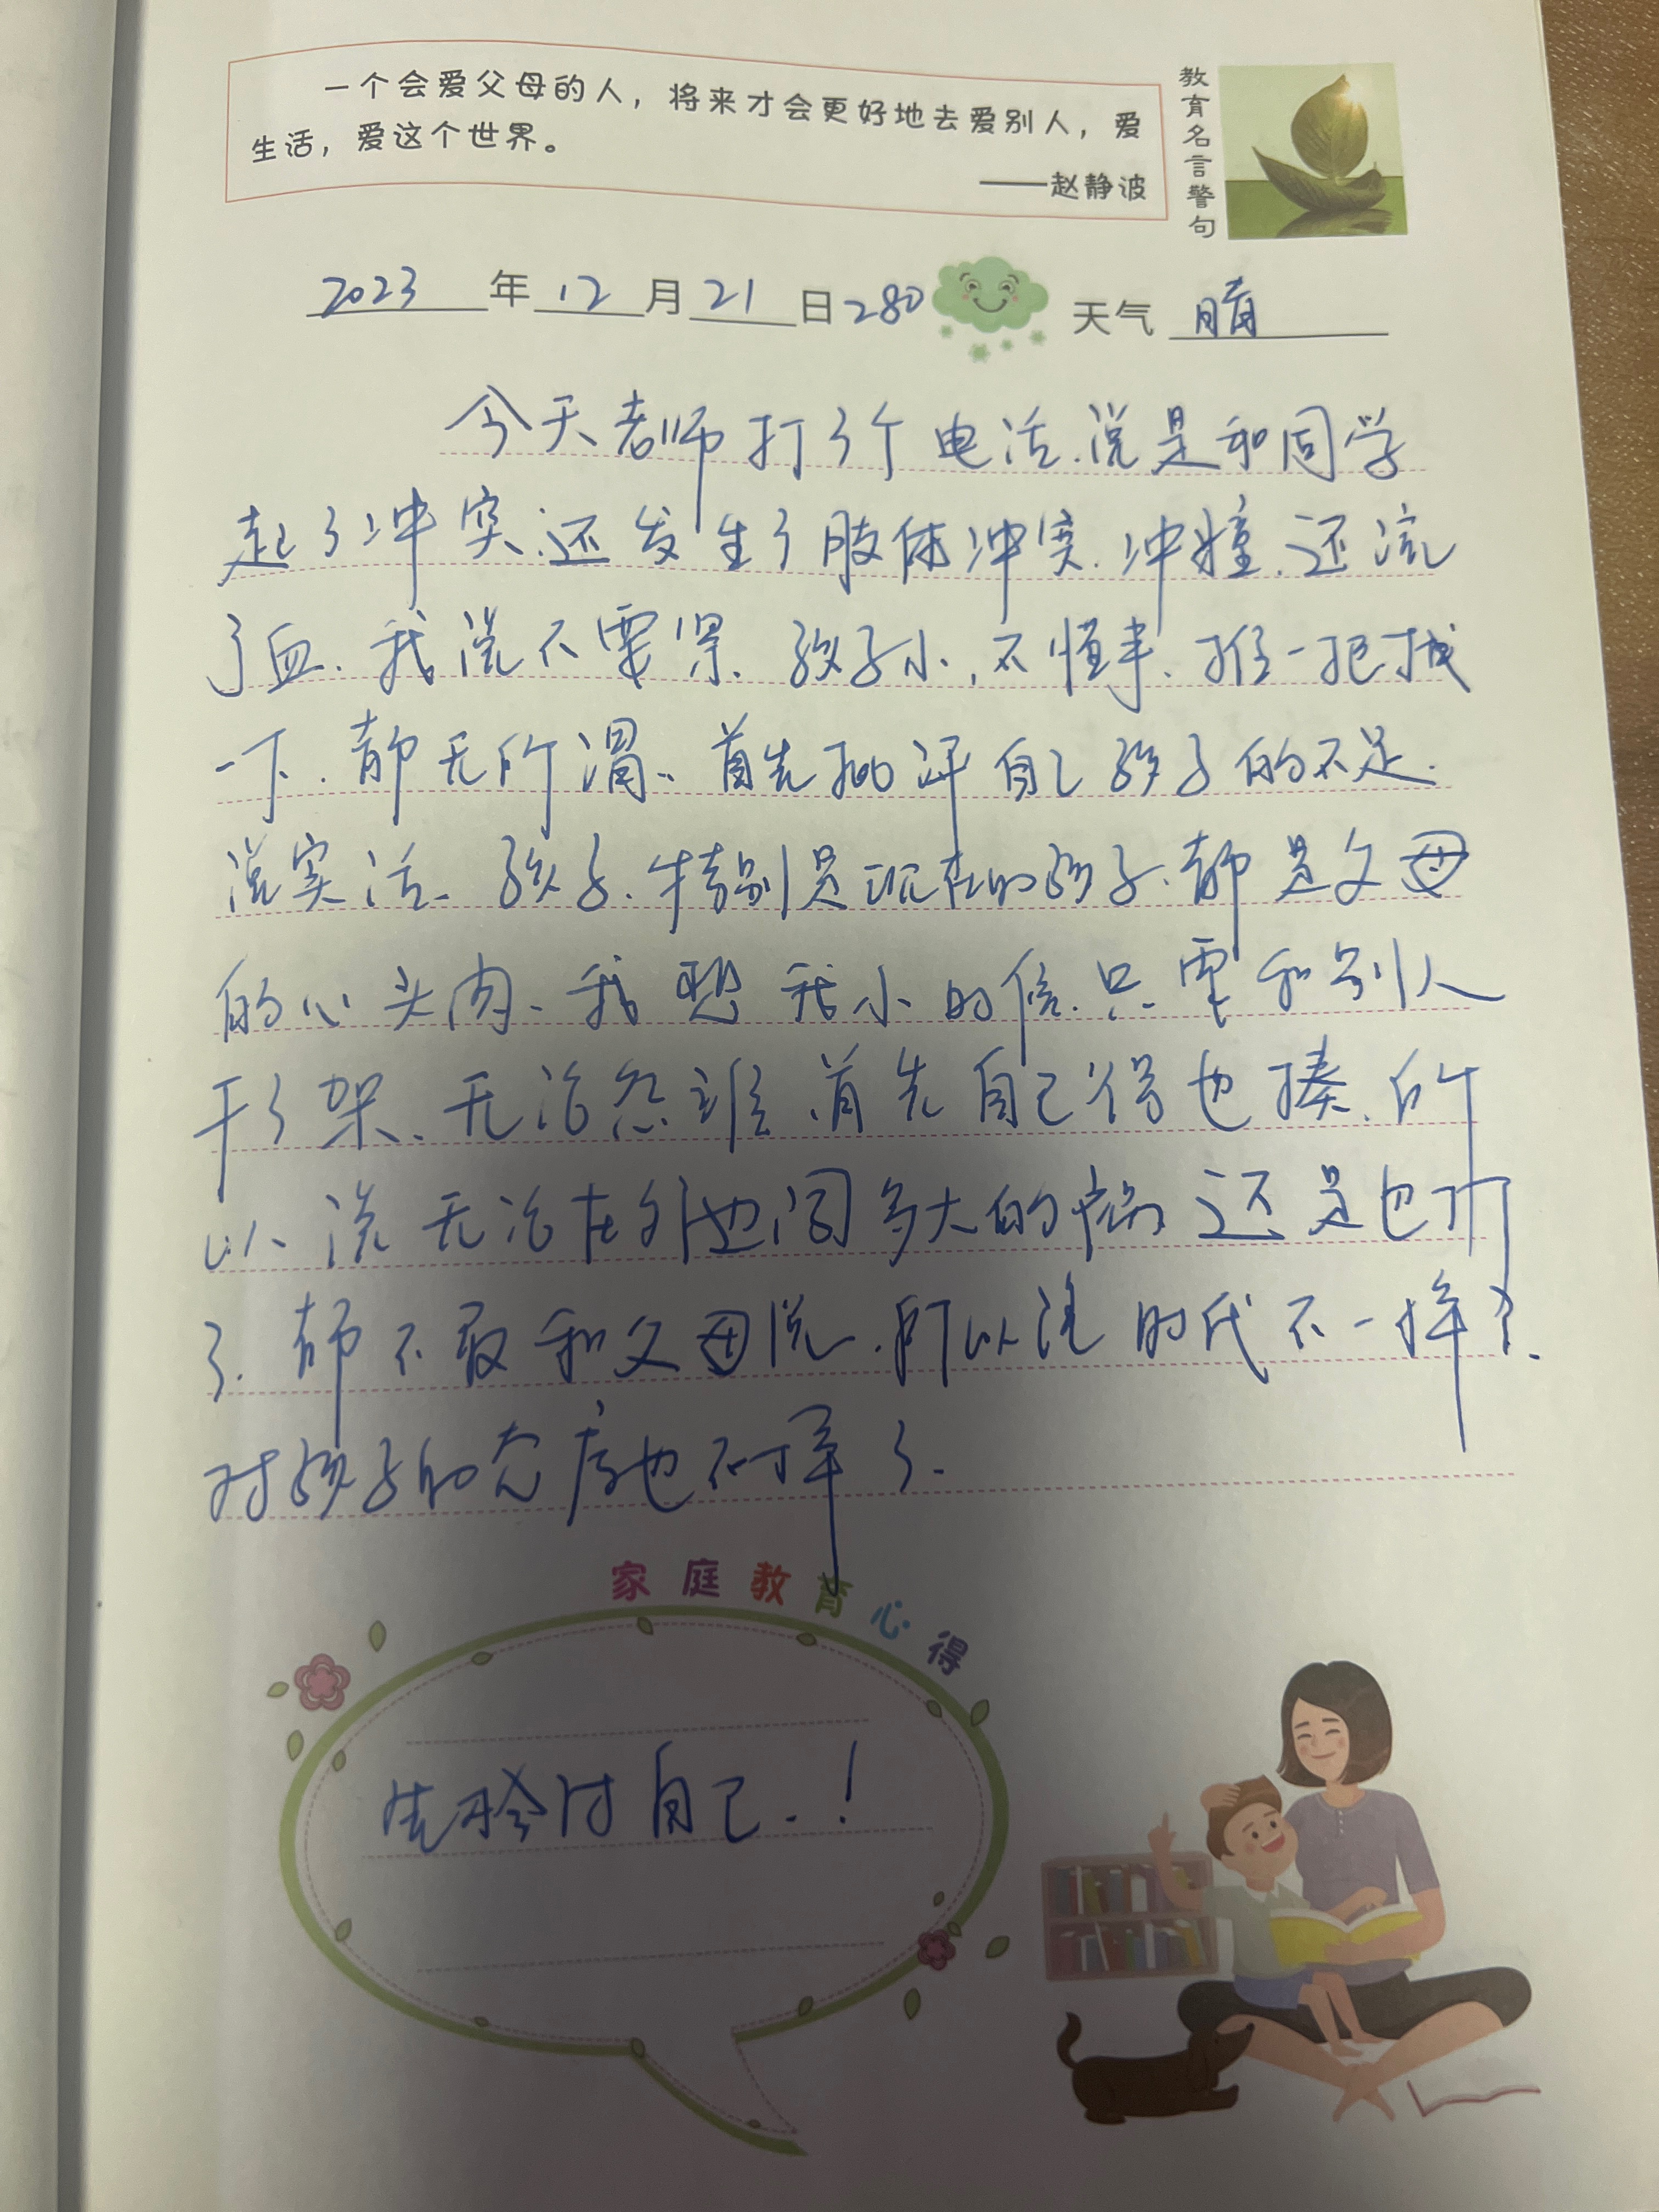 一个会爱父母的人，将来才会更好地去爱别人，爱
生活，爱这个世界。
——赵静波
教育名言警句
2023年12月21日280 天气 晴
今天老师打了个电话.说是和同学
起了冲突.还发生了肢体冲突.冲撞.还流
了血.我说不要紧.孩子小,不懂事.推一把
一下.都无所谓、首先批评自己孩子的不足.
说实话、孩子.特别是现在的孩子.都是父母
的心头肉、我想我小的.只要和别人
干了架、无论怨谁.首先自己得也揍.所
以、说无论在外边闯多大的祸还是
了.都不敢和父母说.所以说时代不一样了.
对孩子的态度也不一样了.
家庭教育心得
先检讨自己.!